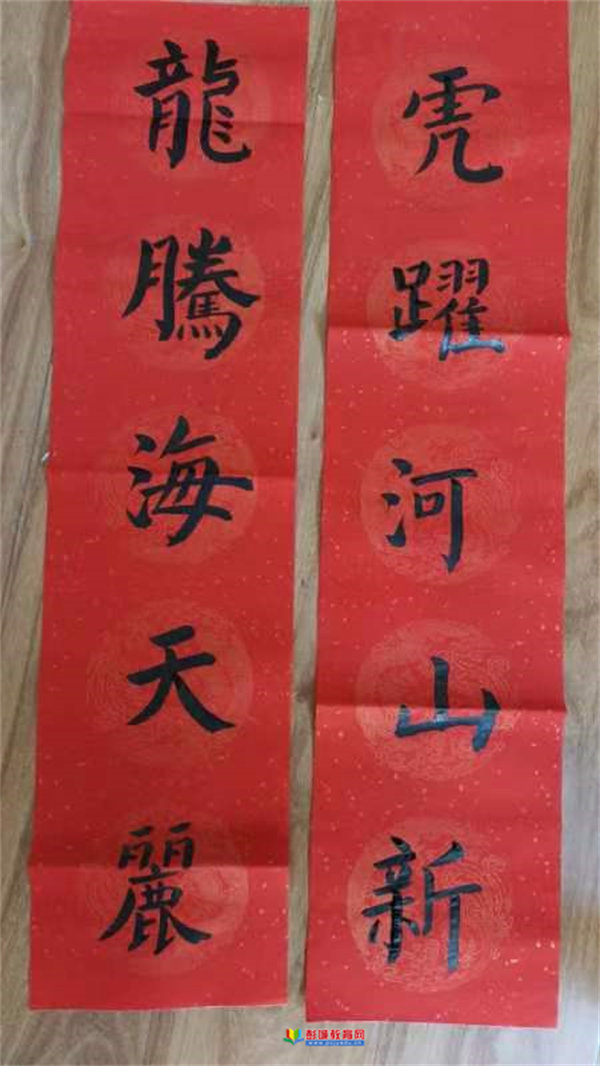 虎躍河山新
龍騰海天麗
彭城教育网